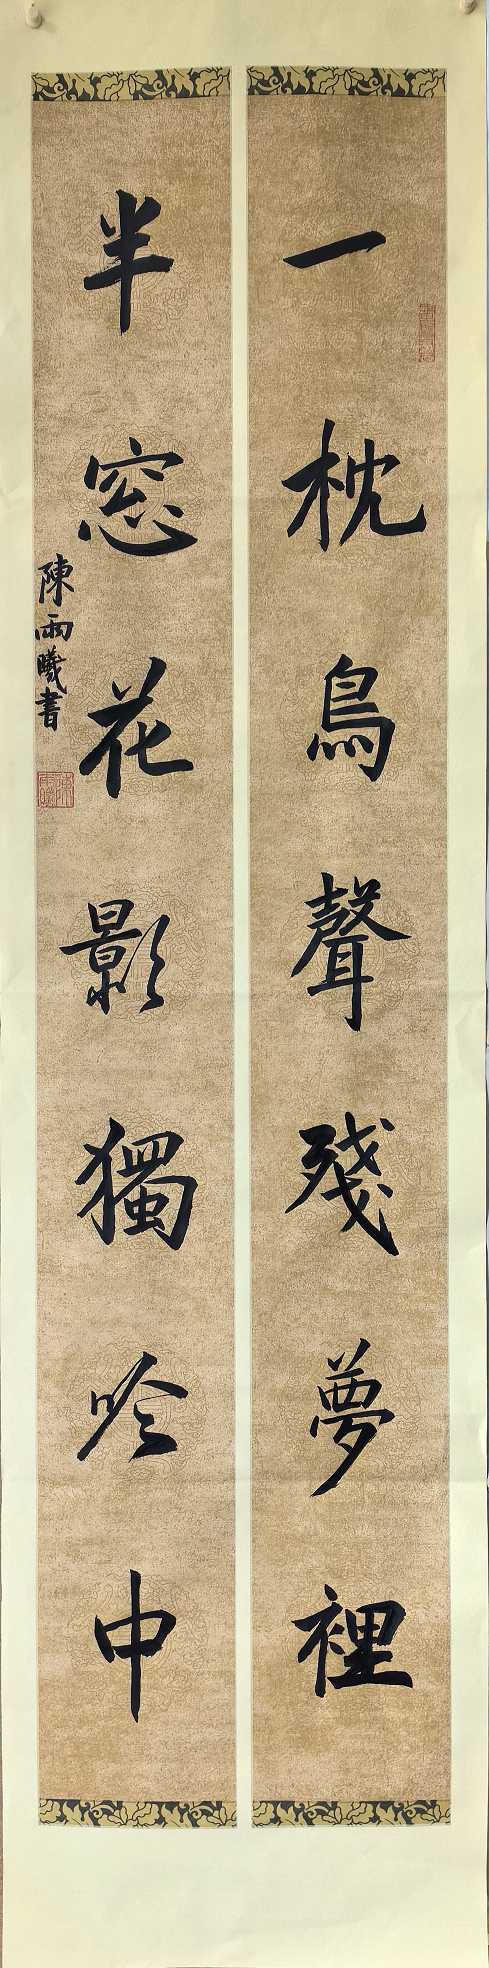 一枕鳥聲殘夢裡
半窓花影獨吟中
陳雨曦書